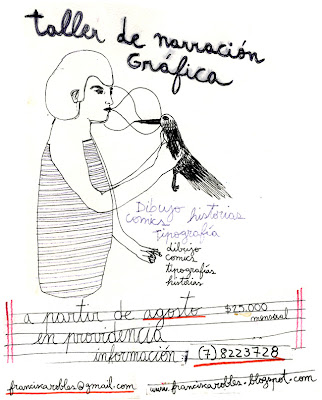 taller de narración
Gráfica
Dibujo historias
comics
tipografía
dibujo
comics
tipografías
historias
a partir de agosto $25.000
mensual
en providencia
información / (7)8223728
franciscarobles@gmail.com www.franciscarobles.blogspot.com